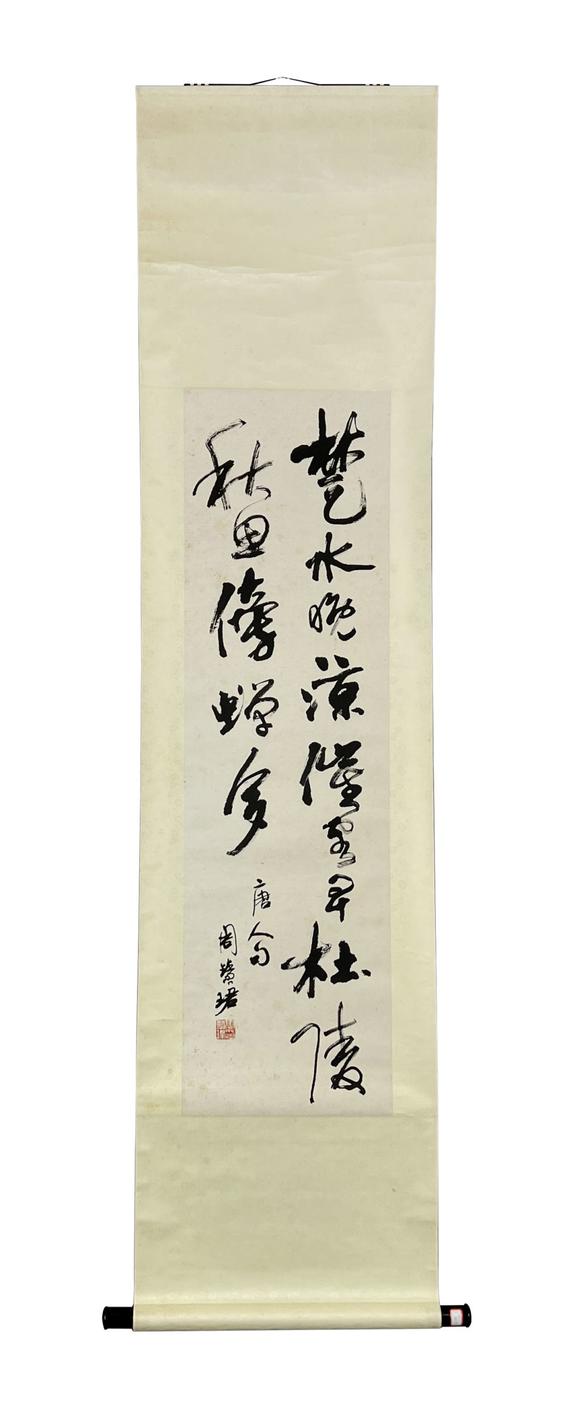 楚水晚涼催客早杜陵
秋思傍蝉多
唐人句
周慧珺